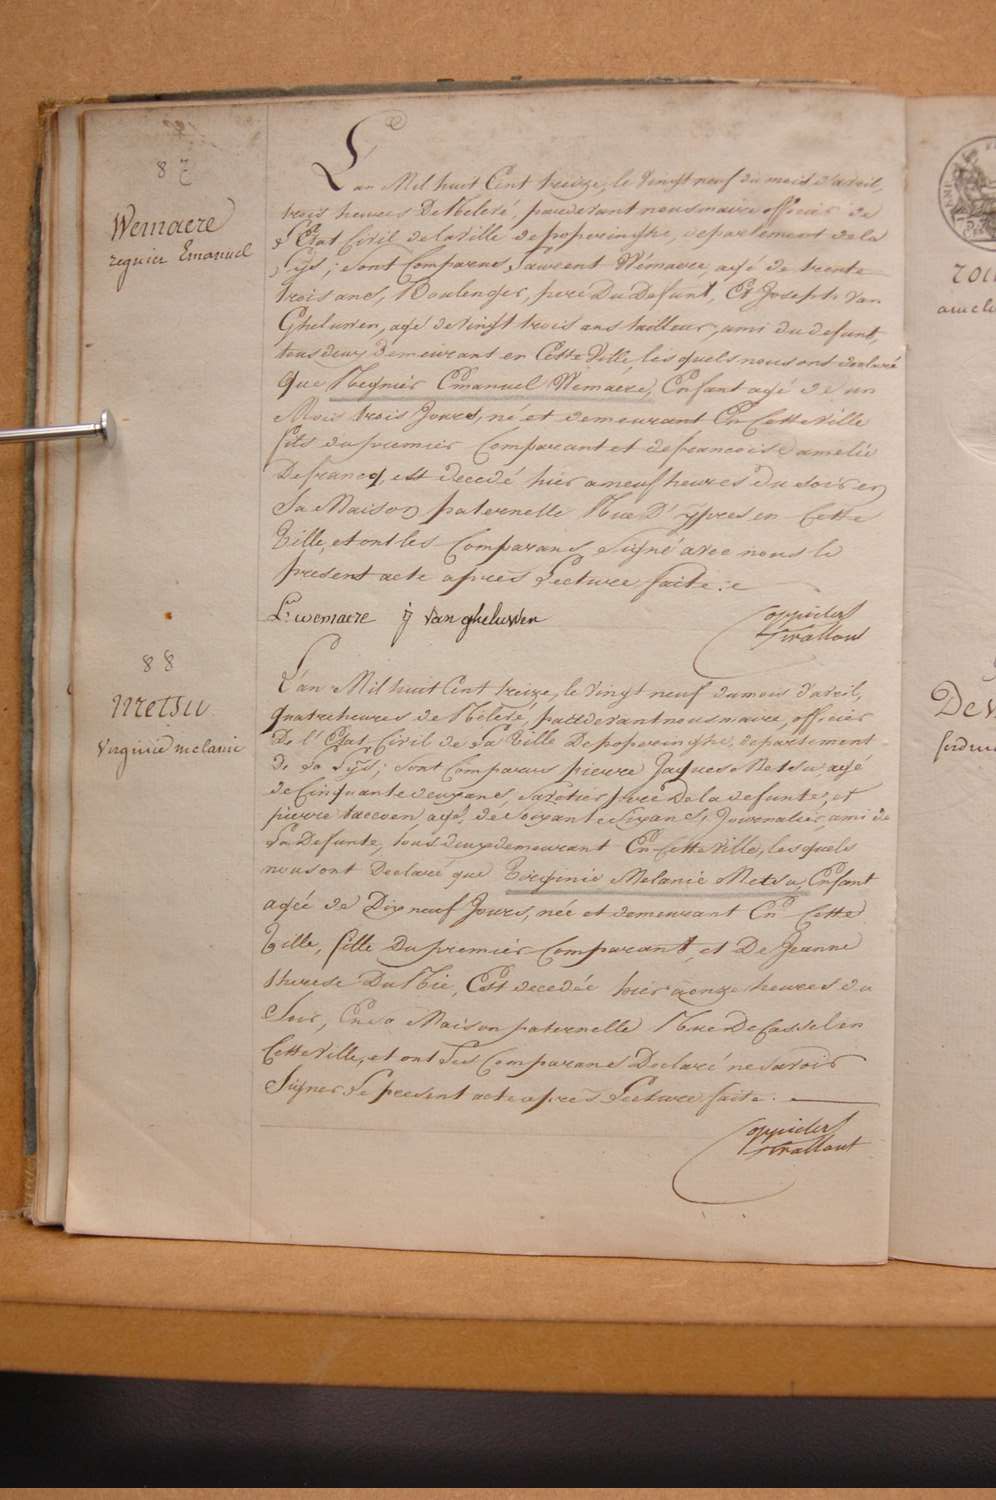 87
Wemaere
regnier Emanuel
L'an Mil huit Cent treize, le vingt neuf du mois d'avril,
trois heures De Relevé, pardevant nous maire officier de
l'Etat Civil de la Ville de poperinghe, departement de la
Lÿs; sont Comparus Laurent Wémaere, agé de trente
trois ans, Boulenger, pere Du Defunt, Et Joseph van
Gheluwen, agé de vingt trois ans tailleur, ami du defunt,
tous deux demeurant en Cette Ville, les quels nous ont declaré
Que Regnier Emanuel Wémaere, Enfant agé de un
Mois trois Jours, né et demeurant En Cette Ville
fils du premier Comparant et de francoise amelie
Defrancq, est decedé hier a neuf heures du soir en
Sa Maison paternelle Rue D'ypres en Cette
Ville, et ont les Comparans Signé avec nous le
present acte après Lecture faite .
Lt wemaere j van gheluwen
88
Metsu
Virginie melanie
L'an Mil huit Cent treize, le vingt neuf du mois d'avril,
quatre heures de Relevé, pardevant nous maire, officier
De l'Etat Civil de La Ville De poperinghe, departement
de La Lÿs; sont Comparus pierre Jaques Metsu, agé
de Cinquante deux ans, pere De la defunte, et
pierre taccoen, agé de Soixante Six ans, Journalier, ami de
La Defunte, tous deux demeurant En Cette Ville, les quels
nous ont Declaré que Virginie Melanie Metsu, Enfant
agée de Dix neuf Jours, née et demeurant En Cette
Ville, fille Du premier Comparant, et De Jeanne
therese Du Rie, Est decedée hier a onze heures du
Soir, En sa Maison paternelle Rue De Cassel en
Cette Ville, et ont Les Comparans Declaré ne savoir
Signer Le present acte apres Lecture faite .